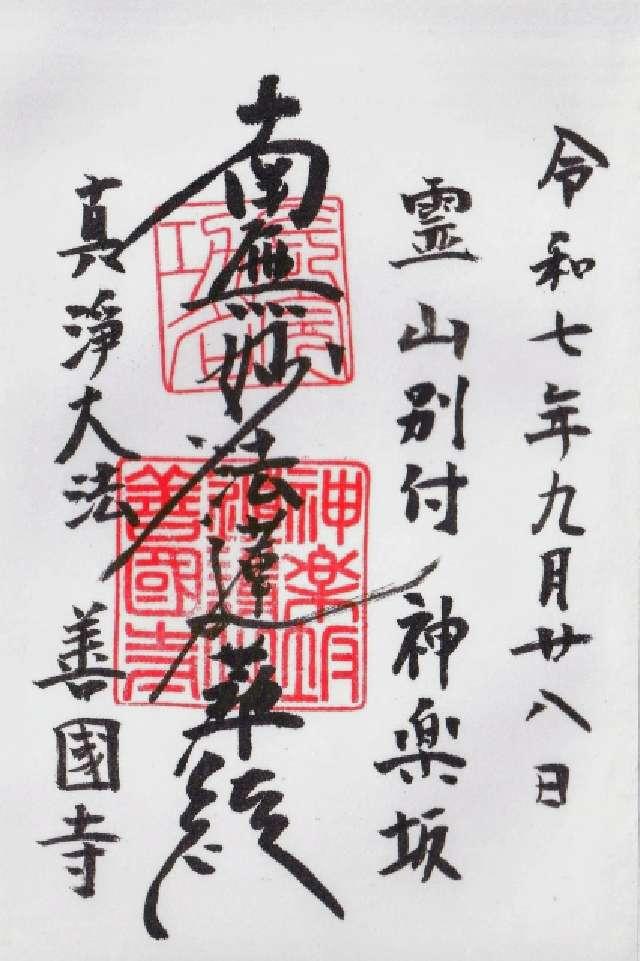 令和七年九月廿八日
霊山別付 神楽坂
南無妙法蓮華経
真淨大法 善國寺
神楽坂
善國寺